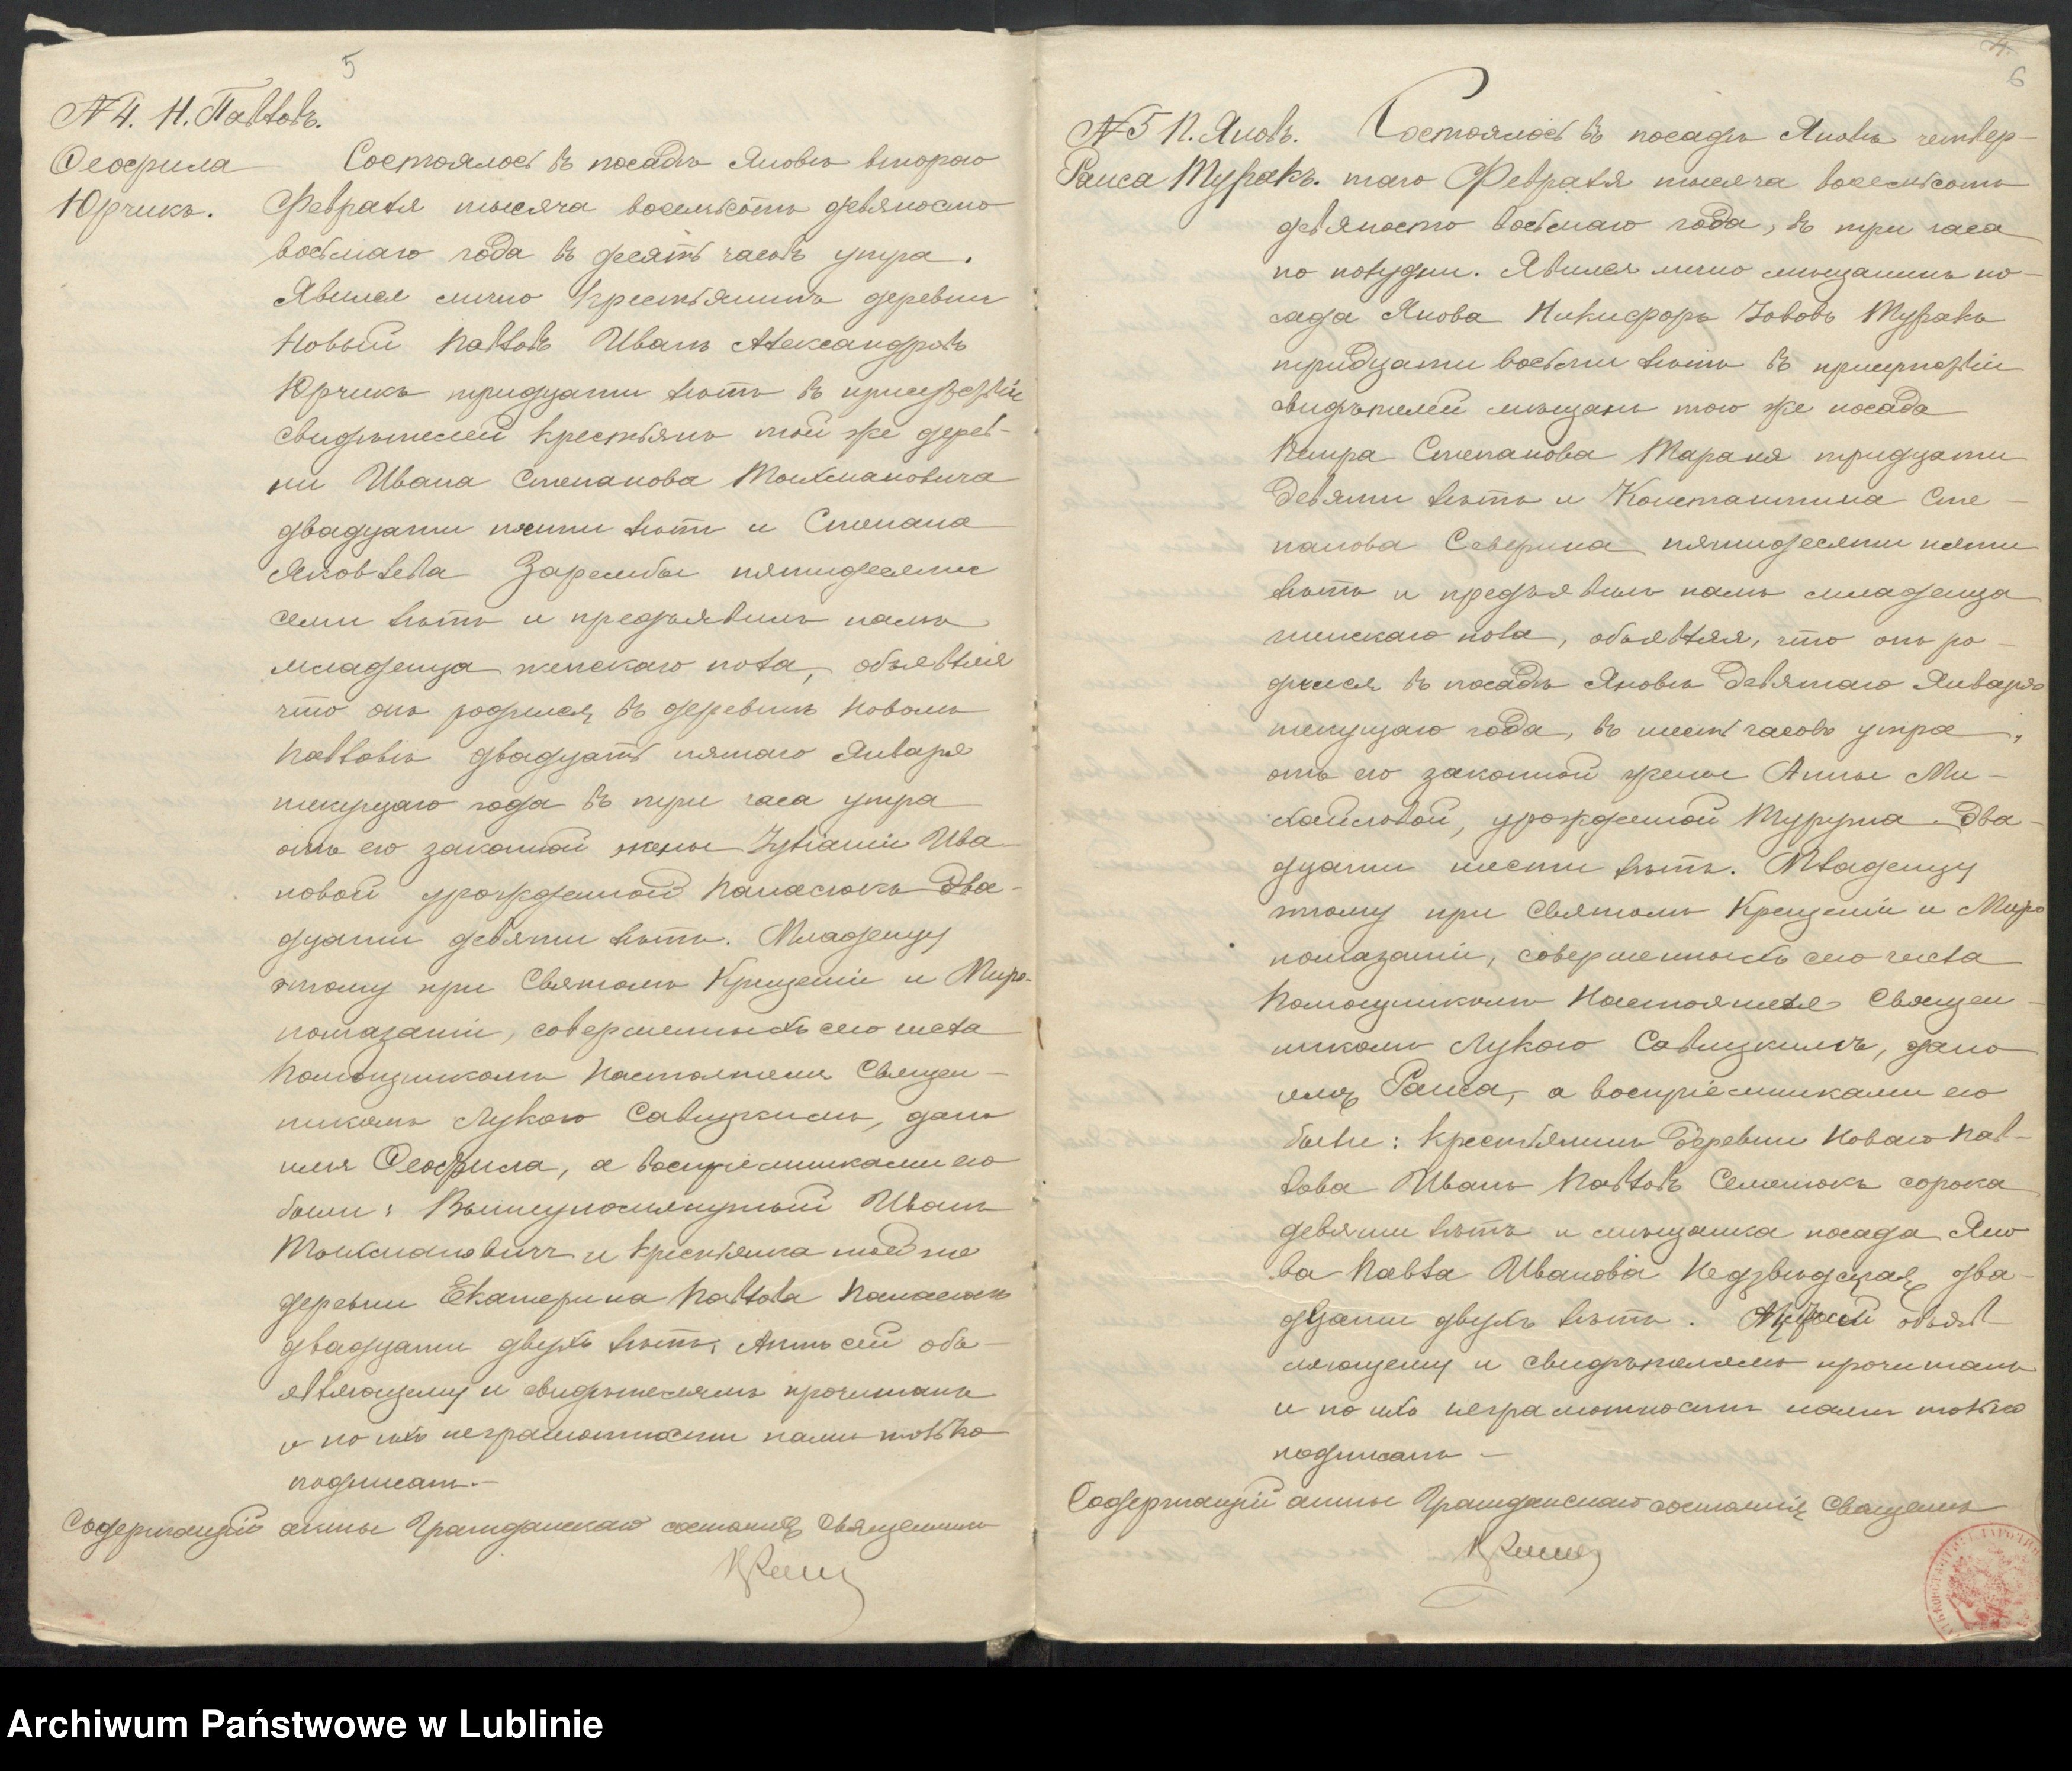 5
№ 4. Н. Павловъ.
Ѳеофила
Юрчикъ.
Состоялось въ посадѣ Яновѣ втораго
Февраля тысяча восемьсотъ девяносто
восьмаго года въ десять часовъ утра.
Явился лично крестьянинъ деревни
Новый Павловъ Иванъ Александровъ
Юрчикъ тридцати лѣтъ въ присутствіи
свидѣтелей крестьянъ той же дерев-
ни Ивана Степанова
двадцати пяти лѣтъ и Степана
Яковлева Зарембы пятидесяти
семи лѣтъ и предъявилъ намъ
младенца женскаго пола, объявляя
что онъ родился въ деревнѣ Новомъ
Павловѣ двадцать пятаго Января
текущаго года въ три часа утра
отъ его законной жены Іуліаніи Ива
новой урожденной Панасюкъ два-
дцати девяти лѣтъ. Младенцу
этому при Святомъ Крещеніи и Миро-
помазаніи, совершенныхъ сего числа
Помощникомъ Настоятеля Священ-
никомъ Лукою Савицкимъ, дано
имя Ѳеофила, а воспріемниками его
были: Вышеупомянутый Иванъ
и крестьянка той же
деревни Екатерина Павлова Панасюкъ
двадцати двухъ лѣтъ. Актъ сей объ-
являющему и свидѣтелямъ прочитанъ
и по ихъ неграмотности нами только
подписанъ.-
Содержащій акты Гражданскаго состоянія Священникъ
6
№ 5 П. Яновъ.
Раиса Туракъ.
Состоялось въ посадѣ Яновѣ четвер-
таго Февраля тысяча восемьсотъ
девяносто восьмаго года, въ три часа
по полудни. Явился лично мѣщанинъ по-
сада Янова Никифоръ Іововъ Туракъ
тридцати восьми лѣтъ въ присутствіи
свидѣтелей мѣщанъ того же посада
Петра Степанова Тараня тридцати
девяти лѣтъ и Константина Сте
панова Северина пятидесяти пяти
лѣтъ и предъявилъ намъ младенца
женскаго пола, объявляя, что онъ ро-
дился въ посадѣ Яновѣ девятаго Января
текущаго года, въ шесть часовъ утра,
отъ его законной жены Анны Ми-
хайловой, урожденной два-
дцати шести лѣтъ. Младенцу
этому при Святомъ Крещеніи и Миро
помазаніи, совершенныхъ сего числа
Помощникомъ Настоятеля Священ-
никомъ Лукою Савицкимъ, дано
имя Раиса, а воспріемниками его
были: крестьянинъ деревни Новаго Пав-
лова Иванъ Павловъ Семенюкъ сорока
девяти лѣтъ и мѣщанка посада Яно
ва Павла Иванова два-
дцати двухъ лѣтъ. Актъ сей объяв-
ляющему и свидѣтелямъ прочитанъ
и по ихъ неграмотности нами только
подписанъ -
Содержащій акты Гражданскаго состоянія Священникъ
Archiwum Państwowe w Lublinie